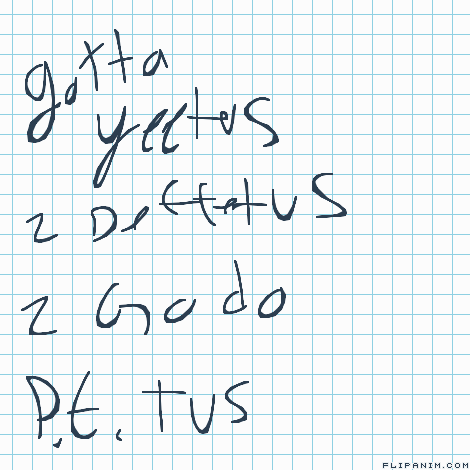 gotta
yeetus
2 Delettetus
2 Go do
P.E. tus
FLIPANIM.COM